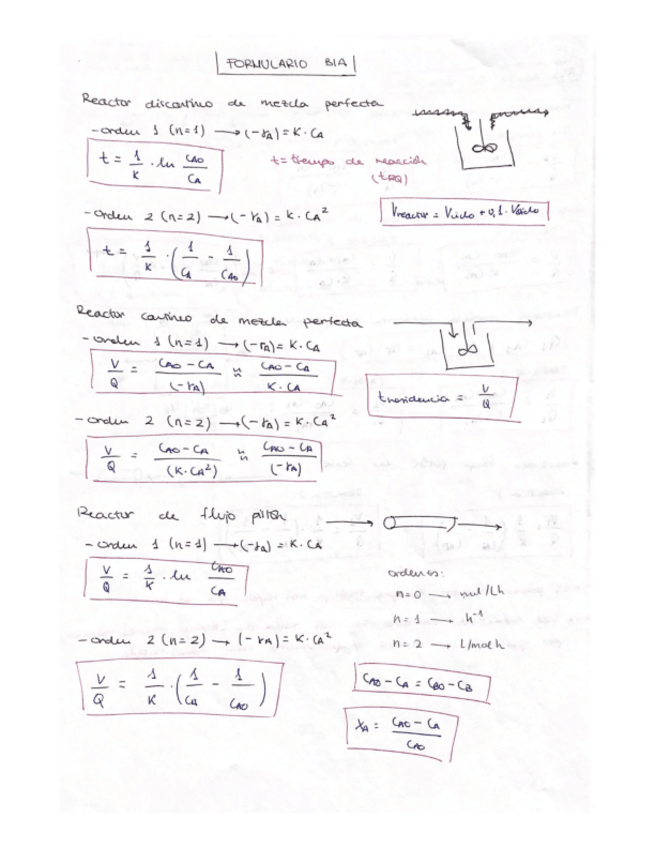 FORMULARIO BIA
Reactor discontinuo de mezcla perfecta
- orden 1 (n=1) → (-rA) = K · CA
t = 1/K · ln CAO/CA
t = tiempo de reacción
(tRQ)
- orden 2 (n=2) → (-rA) = K · CA²
Vreactor = Vútil + 0,1 · Vútil
t = 1/K · (1/CA - 1/CAO)
Reactor continuo de mezcla perfecta
- orden 1 (n=1) → (-rA) = K · CA
V/Q = CAO - CA/(-rA) ≈ CAO - CA/K · CA
tresidencia = V/Q
- orden 2 (n=2) → (-rA) = K · CA²
V/Q = CAO - CA/(K · CA²) ≈ CAO - CA/(-rA)
Reactor de flujo pistón
- orden 1 (n=1) → (-rA) = K · CA
V/Q = 1/K · ln CAO/CA
ordenes:
n=0 → mol/Lh
n=1 → h⁻¹
- orden 2 (n=2) → (-rA) = K · CA²
n=2 → L/mol h
V/Q = 1/K · (1/CA - 1/CAO)
CAO - CA = CBO - CB
XA = CAO - CA/CAO